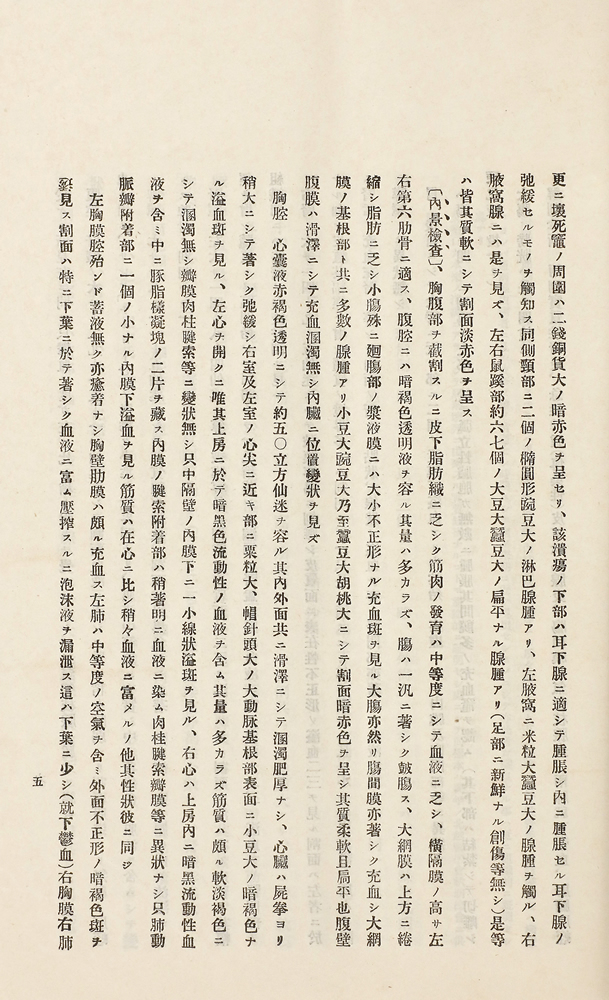 更ニ壞死竈ノ周圍ハ二錢銅貨大ノ暗赤色ヲ呈セリ、該潰瘍ノ下部ハ耳下腺ニ適シテ腫脹シ內ニ腫脹セル耳下腺ノ
弛緩セルモノヲ觸知ス同側頸部ニ二個ノ橢圓形豌豆大ノ淋巴腺腫アリ、左腋窩ニ米粒大蠶豆大ノ腺腫ヲ觸ル、右
腋窩腺ニハ是ヲ見ズ、左右鼠蹊部約六七個ノ大豆大蠶豆大ノ扁平ナル腺腫アリ(足部ニ新鮮ナル創傷等無シ)是等
ハ皆其質軟ニシテ割面淡赤色ヲ呈ス
〔內景檢査〕、胸腹部ヲ截割スルニ皮下脂肪織ニ乏シク筋肉ノ發育ハ中等度ニシテ血液ニ乏シ、橫隔膜ノ高サ左
右第六肋骨ニ適ス、腹腔ニハ暗褐色透明液ヲ容ル其量ハ多カラズ、腸ハ一汎ニ著シク皷腸ス、大網膜ハ上方ニ綣
縮シ脂肪ニ乏シ小腸殊ニ廻腸部ノ漿液膜ニハ大小不正形ナル充血斑ヲ見ル大腸亦然リ腸間膜亦著シク充血シ大網
膜ノ基根部ト共ニ多數ノ腺腫アリ小豆大豌豆大乃至蠶豆大胡桃大ニシテ割面暗赤色ヲ呈シ其質柔軟且扁平也腹壁
腹膜ハ滑澤ニシテ充血溷濁無シ內臟ニ位置變狀ヲ見ズ
胸腔 心囊液赤褐色透明ニシテ約五〇立方仙迷ヲ容ル其內外面共ニ滑澤ニシテ溷濁肥厚ナシ、心臟ハ屍拳ヨリ
稍大ニシテ著シク弛緩シ右室及左室ノ心尖ニ近キ部ニ粟粒大、帽針頭大ノ大動脉基根部表面ニ小豆大ノ暗褐色ナ
ル溢血斑ヲ見ル、左心ヲ開クニ唯其上房ニ於テ暗黑色流動性ノ血液ヲ含ム其量ハ多カラズ筋質ハ頗ル軟淡褐色ニ
シテ溷濁無シ瓣膜肉柱腱索等ニ變狀無シ只中隔壁ノ內膜下ニ一小線狀溢斑ヲ見ル、右心ハ上房內ニ暗黑流動性血
液ヲ含ミ中ニ豚脂樣凝塊ノ二片ヲ藏ス內膜ノ腱索附着部ハ稍著明ニ血液ニ染ム肉柱腱索瓣膜等ニ異狀ナシ只肺動
脈瓣附着部ニ一個ノ小ナル內膜下溢血ヲ見ル筋質ハ在心ニ比シ稍々血液ニ富メルノ他其性狀彼ニ同ジ
左胸膜腔殆ンド蓄液無ク亦癒着ナシ胸壁肋膜ハ頗ル充血ス左肺ハ中等度ノ空氣ヲ含ミ外面不正形ノ暗褐色斑ヲ
發見ス割面ハ特ニ下葉ニ於テ著シク血液ニ富ム壓搾スルニ泡沫液ヲ漏泄ス這ハ下葉ニ少シ(就下鬱血)右胸膜右肺
五